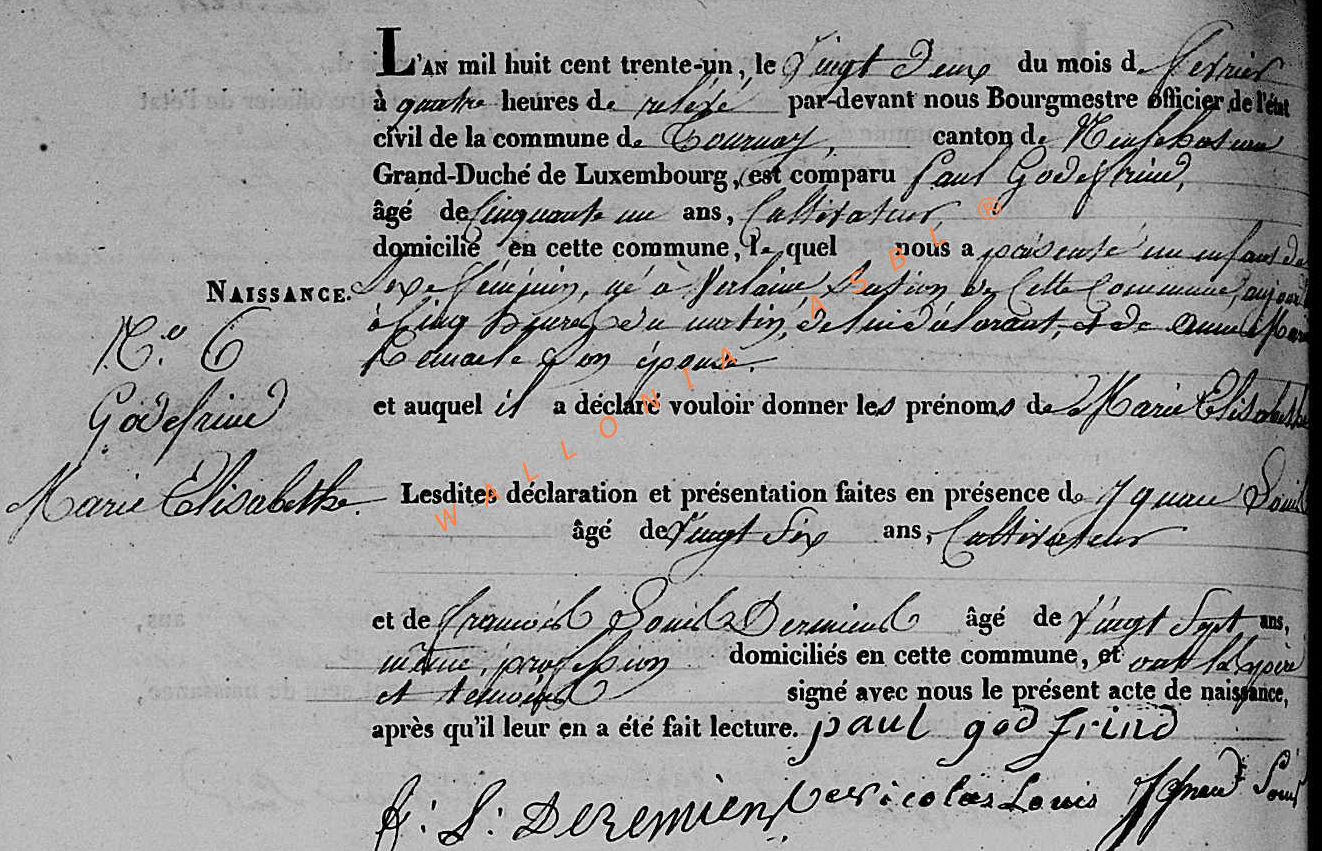 L'AN mil huit cent trente-un, le Vingt Deux du mois de fevrier
à quatre heures de relevé par-devant nous Bourgmestre officier de l'état
civil de la commune de Tournay, canton de Neufchateau
Grand-Duché de Luxembourg, est comparu Paul Godefrind,
âgé de Cinquante un ans, Cultivateur
domicilié en cette commune, le quel nous a présenté un enfant de
NAISSANCE. Sexe féminin, né à Verlaine Section de Cette Commune, aujourd
N.o 6
à Cinq heures du matin, de lui déclarant, et de Anne Marie
son épouse.
Godefrind
et auquel il a déclaré vouloir donner les prénoms de Marie Elisabethe
Marie Elisabethe.
Lesdites déclaration et présentation faites en présence de
âgé de Vingt Six ans, Cultivateur
et de francois Louis Deremiens âgé de Vingt Sept ans,
même profession domiciliés en cette commune, et ont le père
et témoins signé avec nous le présent acte de naissance,
après qu'il leur en a été fait lecture. paul godfrind
f: L: Deremiens Nicolas Louis
WALLONIA ASBL ®